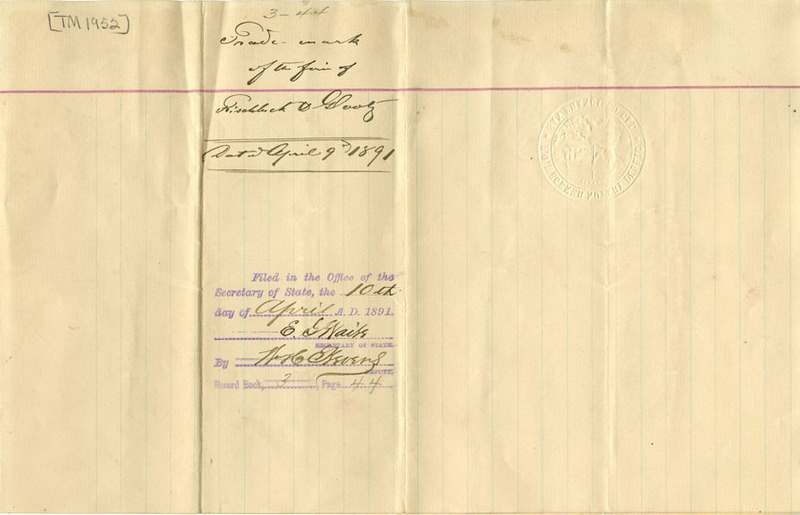 [TM 1952]
3-44
Trade-mark
of the firm of
Fischbeck & Glootz
Dated April 9th 1891
Filed in the Office of the
Secretary of State, the 10th
day of April A. D. 1891.
E. G. Waite
SECRETARY OF STATE.
By W. H. C. Stevens
DEPUTY.
Record Book, 3, Page 44